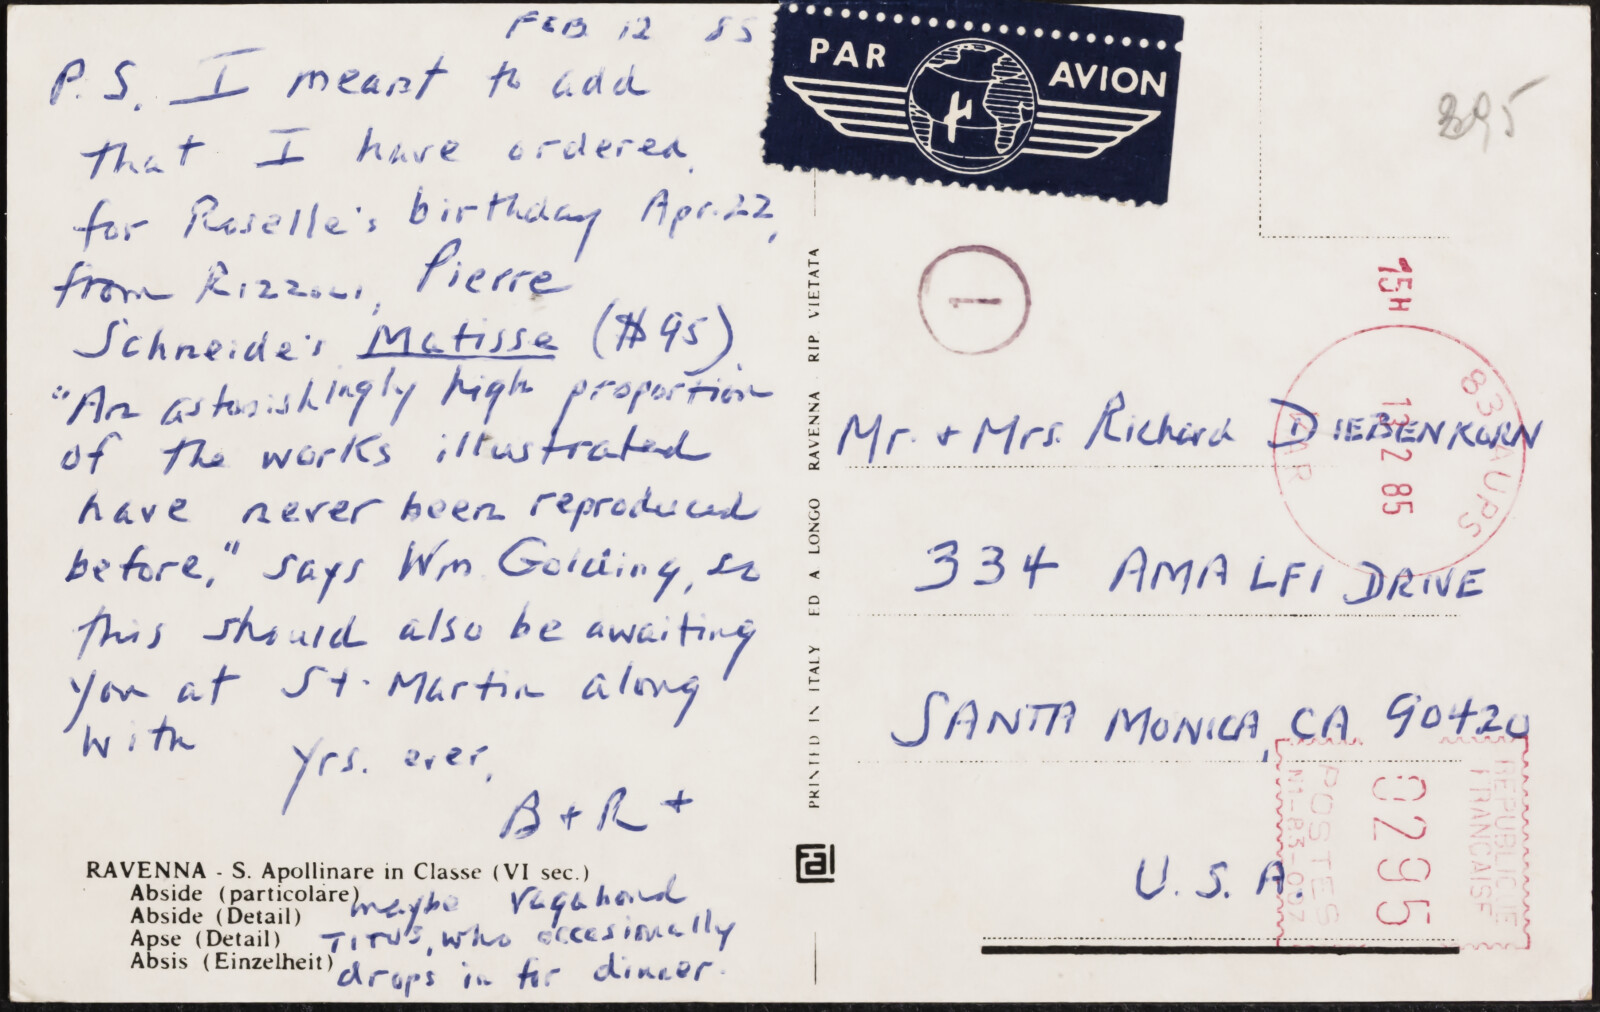 FEB 12 85
P.S. I meant to add
that I have ordered,
for Roselle's birthday Apr. 22,
from Rizzoli, Pierre
Schneider's Matisse ($95)
"An astonishingly high proportion
of the works illustrated
have never been reproduced
before," says Wm. Golding, so
this should also be awaiting
you at St. Martin along
with
yrs. ever,
B + R +
maybe vagabond
TITUS, who occasionally
drops in for dinner.
RAVENNA - S. Apollinare in Classe (VI sec.)
Abside (particolare)
Abside (Detail)
Apse (Detail)
Absis (Einzelheit)
PRINTED IN ITALY ED A LONGO RAVENNA . RIP. VIETATA
al
PAR AVION
395
1
15H
83 AUPS
VAR
13 2 85
Mr. + Mrs. Richard DIEBENKORN
334 AMALFI DRIVE
SANTA MONICA, CA 90420
U. S. A.
REPUBLIQUE
FRANCAISE
0295
POSTES